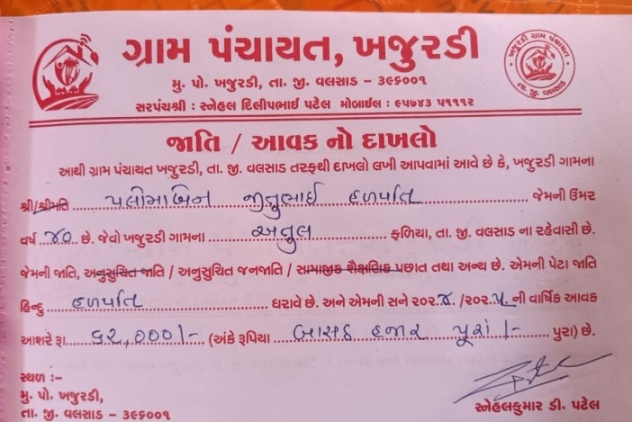 ગ્રામ પંચાયત, ખજુરડી
મુ. પો. ખજુરડી, તા. જી. વલસાડ – ૩૯૬૦૦૧
સરપંચશ્રી : સ્નેહલ દિલીપભાઈ પટેલ મોબાઈલ : ૯૫૭૪૩ ૫૧૧૧૨
જાતિ / આવક નો દાખલો
આથી ગ્રામ પંચાયત ખજુરડી, તા. જી. વલસાડ તરફથી દાખલો લખી આપવામાં આવે છે કે, ખજુરડી ગામના
શ્રી/શ્રીમતિ જીતુભાઈ હળપતિ જેમની ઉંમર
વર્ષ ૪૦ છે. જેવો ખજુરડી ગામના અતુલ ફળિયા, તા. જી. વલસાડ ના રહેવાસી છે.
જેમની જાતિ, અનુસુચિત જાતિ / અનુસુચિત જનજાતિ / સામાજીક શૈક્ષણિક પછાત તથા અન્ય છે. એમની પેટા જાતિ
હિન્દુ હળપતિ ધરાવે છે. અને એમની સને ૨૦૨૪/૨૦૨૫ ની વાર્ષિક આવક
આશરે રૂા. ૬૨,૦૦૦/- (અંકે રૂપિયા બાસઠ હજાર પૂરા/- પુરા) છે.
સ્થળ :-
મુ. પો. ખજુરડી,
તા. જી. વલસાડ – ૩૯૬૦૦૧
સ્નેહલકુમાર ડી. પટેલ